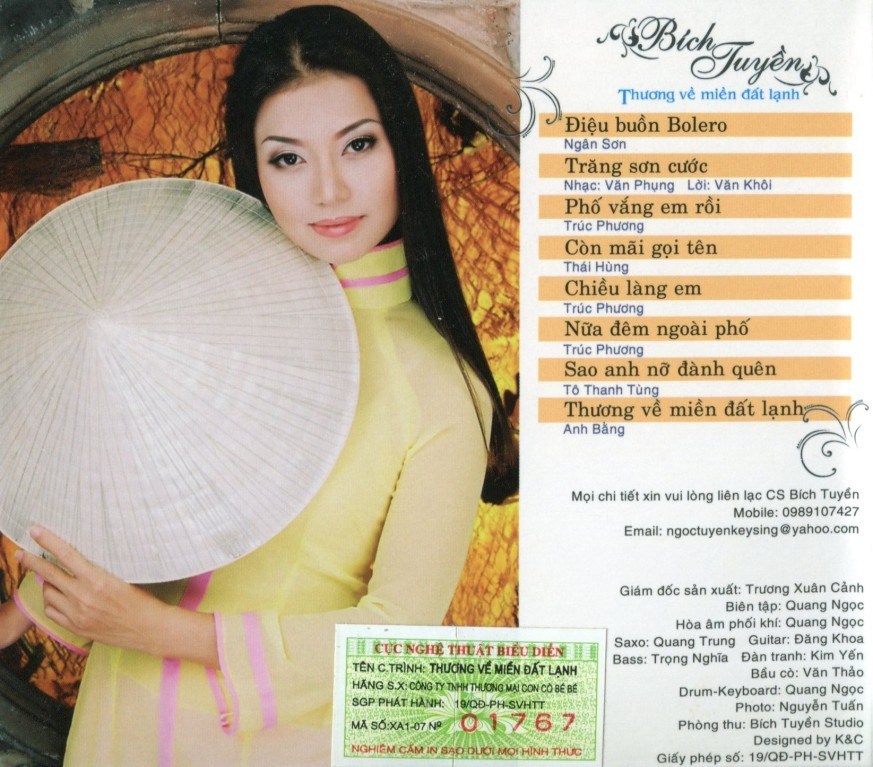 Bích Tuyền
Thương về miền đất lạnh
Điệu buồn Bolero
Ngân Sơn
Trăng sơn cước
Nhạc: Văn Phụng Lời: Văn Khôi
Phố vắng em rồi
Trúc Phương
Còn mãi gọi tên
Thái Hùng
Chiều làng em
Trúc Phương
Nữa đêm ngoài phố
Trúc Phương
Sao anh nỡ đành quên
Tô Thanh Tùng
Thương về miền đất lạnh
Anh Bằng
Mọi chi tiết xin vui lòng liên lạc CS Bích Tuyền
Mobile: 0989107427
Email: ngoctuyenkeysing@yahoo.com
Giám đốc sản xuất: Trương Xuân Cảnh
Biên tập: Quang Ngọc
Hòa âm phối khí: Quang Ngọc
Saxo: Quang Trung Guitar: Đăng Khoa
Bass: Trọng Nghĩa Đàn tranh: Kim Yến
Bầu cò: Văn Thảo
Drum-Keyboard: Quang Ngọc
Photo: Nguyễn Tuấn
Phòng thu: Bích Tuyền Studio
Designed by K&C
Giấy phép số: 19/QĐ-PH-SVHTT
CỤC NGHỆ THUẬT BIỂU DIỄN
TÊN C.TRÌNH: THƯƠNG VỀ MIỀN ĐẤT LẠNH
HÃNG S.X: CÔNG TY TNHH THƯƠNG MẠI CON CÒ BÉ BÉ
SGP PHÁT HÀNH: 19/QĐ-PH-SVHTT
MÃ SỐ:XA1-07 Nº 01767
NGHIÊM CẤM IN SAO DƯỚI MỌI HÌNH THỨC